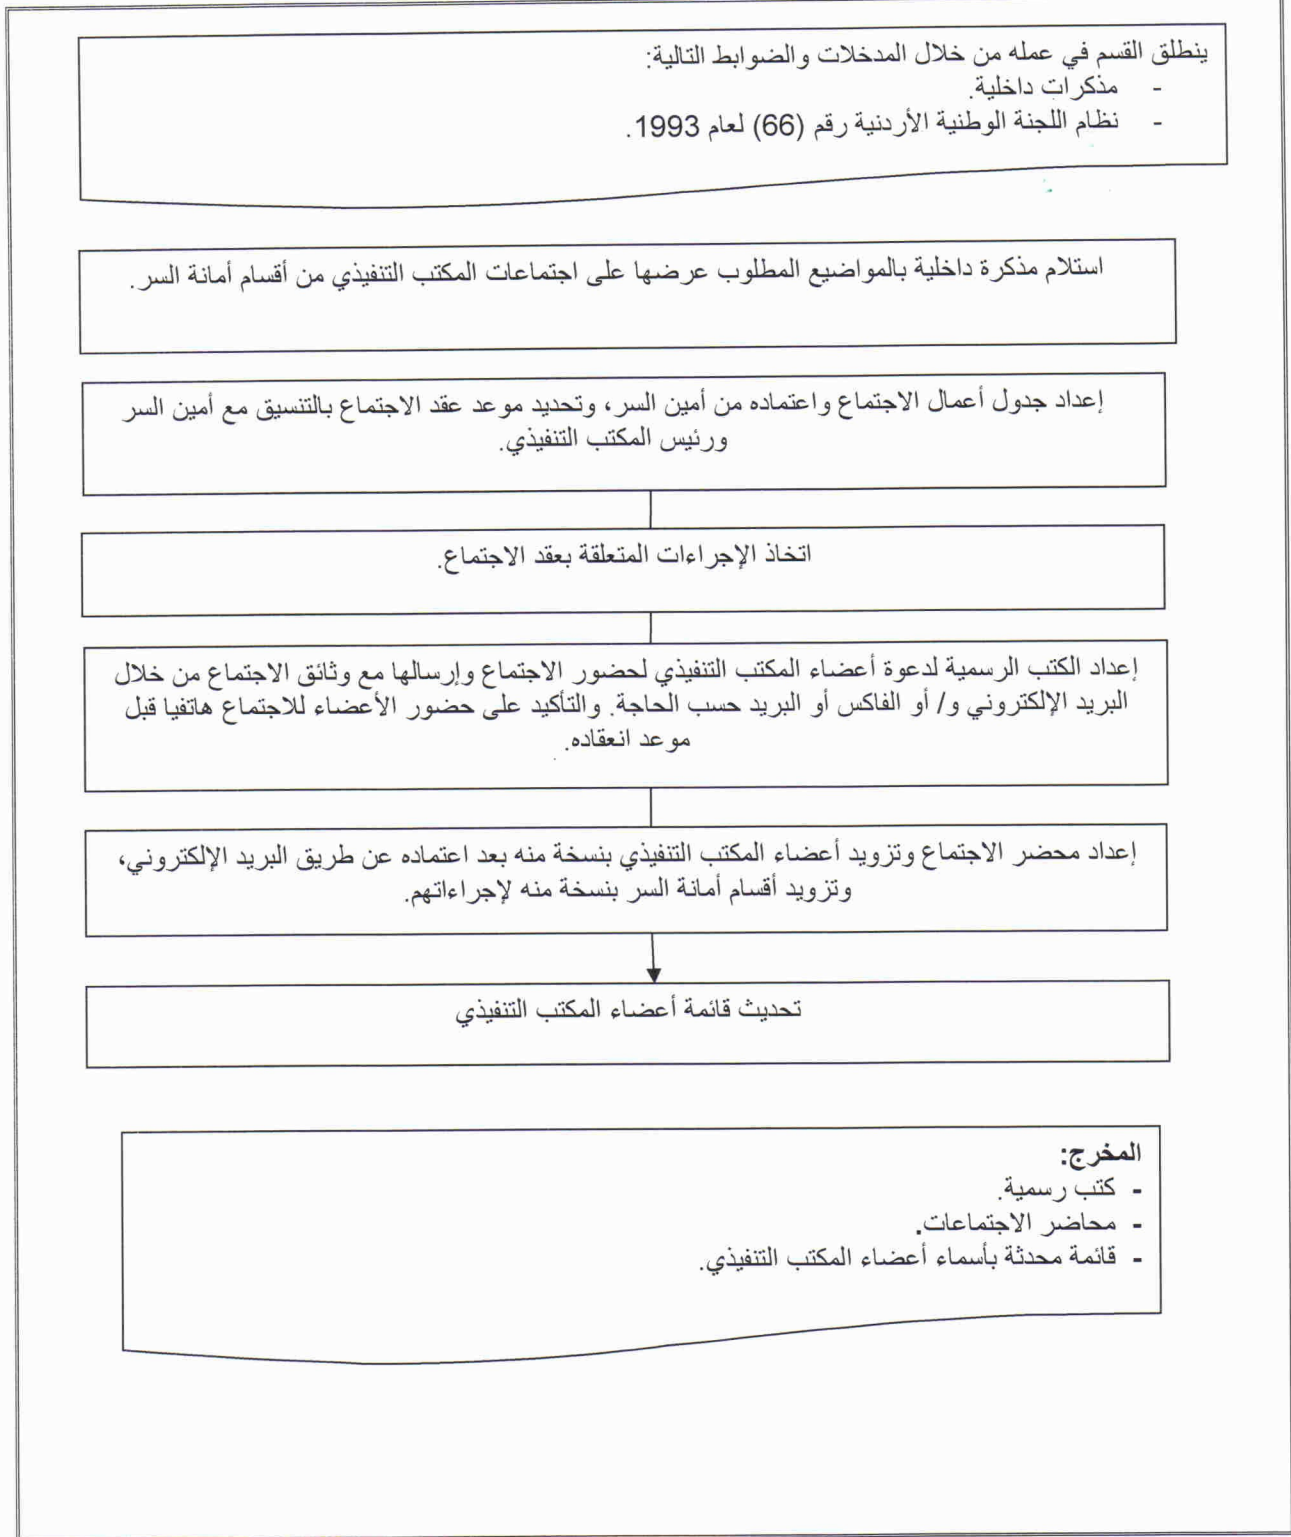 ينطلق القسم في عمله من خلال المدخلات والضوابط التالية:
- مذكرات داخلية.
- نظام اللجنة الوطنية الأردنية رقم (66) لعام 1993.
استلام مذكرة داخلية بالمواضيع المطلوب عرضها على اجتماعات المكتب التنفيذي من أقسام أمانة السر.
إعداد جدول أعمال الاجتماع واعتماده من أمين السر، وتحديد موعد عقد الاجتماع بالتنسيق مع أمين السر
ورئيس المكتب التنفيذي.
اتخاذ الإجراءات المتعلقة بعقد الاجتماع.
إعداد الكتب الرسمية لدعوة أعضاء المكتب التنفيذي لحضور الاجتماع وإرسالها مع وثائق الاجتماع من خلال
البريد الإلكتروني و/ أو الفاكس أو البريد حسب الحاجة. والتأكيد على حضور الأعضاء للاجتماع هاتفيا قبل
موعد انعقاده.
إعداد محضر الاجتماع وتزويد أعضاء المكتب التنفيذي بنسخة منه بعد اعتماده عن طريق البريد الإلكتروني،
وتزويد أقسام أمانة السر بنسخة منه لإجراءاتهم.
تحديث قائمة أعضاء المكتب التنفيذي
المخرج:
- كتب رسمية.
- محاضر الاجتماعات.
- قائمة محدثة بأسماء أعضاء المكتب التنفيذي.